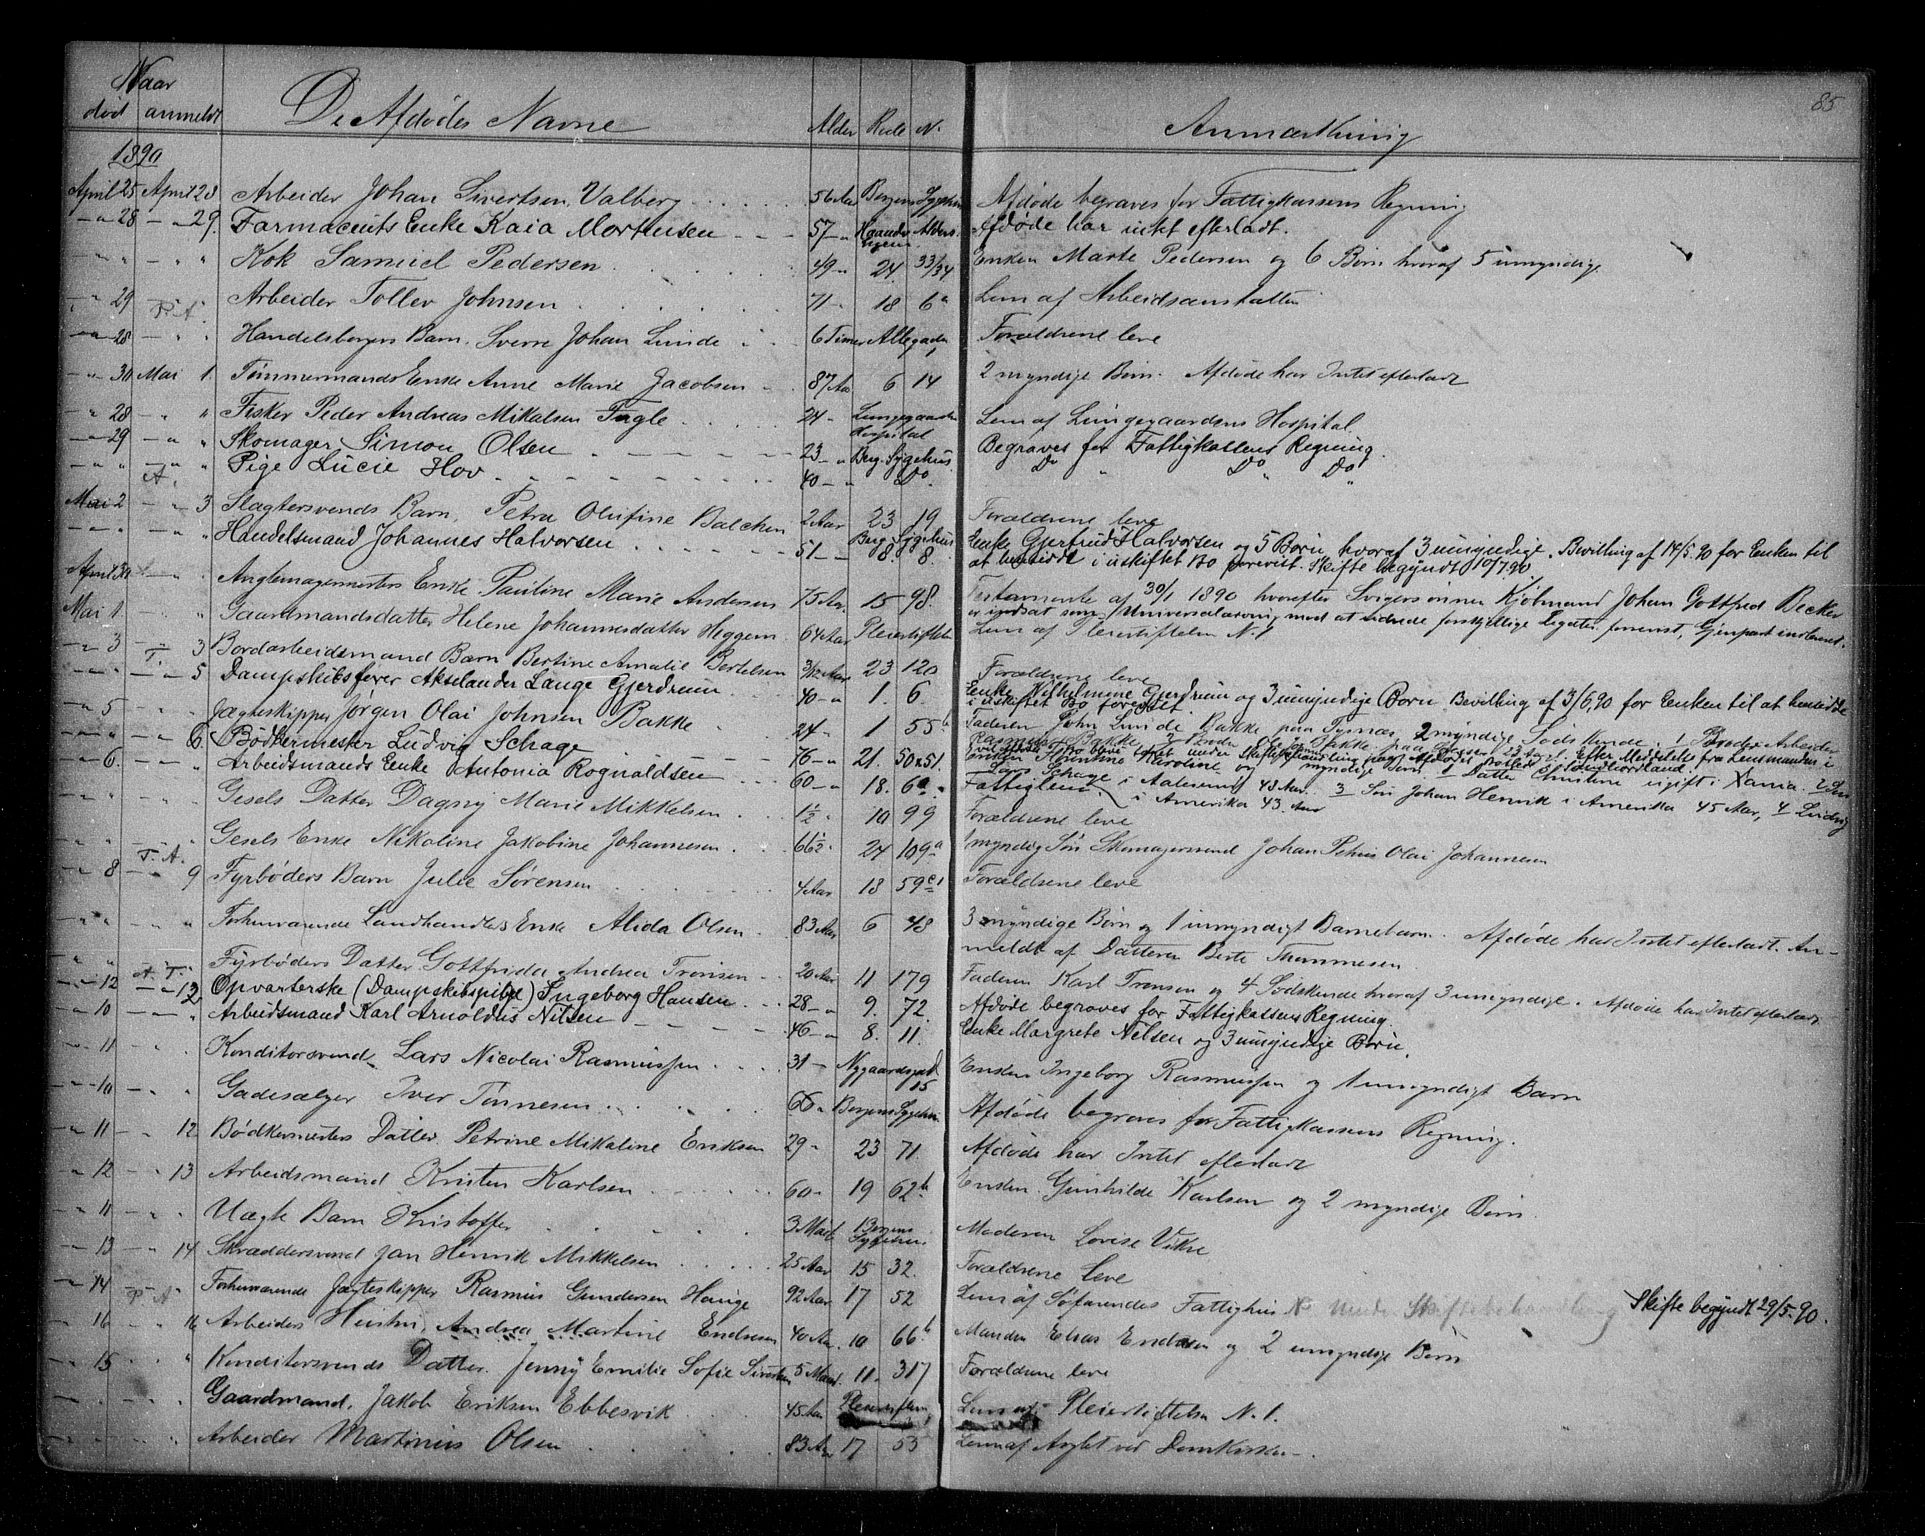 85
Naar
død anmeldt De Afdødes Navne Alder Rode No. Anmærkning
1890
April 25 April 28 Arbeider Johan Sivertsen Valberg 56 Aar Bergens Sygehus Afdøde begraves for Fattigkassens Regning
" 28 " 29. Farmaceuts Enke Kaia Mortensen 57 " Afdøde har intet efterladt.
" " " " Kok Samuel Pedersen 49 " 24. 33/34 Enken Marte Pedersen og 6 Børn hvoraf 5 umyndige
" 29 P. A. Arbeider Tollev Johnsen 71 " 18 6a Lem af Arbeidsanstalten
" 28 " " Handelsborgers Barn Sverre Johan Linde 6 Timer Allegaden Forældrene leve
" 30 Mai 1. Tømmermands Enke Anne Marie Jacobsen 87 Aar 6 14 2 myndige Børn. Afdøde har Intet efterladt
" 28 " " Fisker Peder Andreas Mikalsen Fugle 24 " Lungegaardens Hospital Lem af Lungegaardens Hospital.
" 29 " " Skomager Simon Olsen 23 " Berg. Sygehus Begraves for Fattigkassens Regning.
" " " " Pige Lucie Hov 40 " Do. Do " Do " Do "
A.
Mai 2 " 3 Slagtersvends Barn, Petra Olufine Balchen 2 Aar 23 19 Forældrene leve
" " " " Handelsmand Johannes Halvorsen 51 " Berg. Sygehus 8. 8. Enke Gjertrud Halvorsen og 5 Børn, hvoraf 3 umyndige. Bevilling af 14/5 90 for Enken til
at hensidde i uskiftet Bo forevist. Skifte begyndt 10/7 90
April 30 " " Pauline Marie Andersen 75 Aar 15 98. Testamente af 30/1 1890 hvorefter Svigersønnen Kjøbmand Johan Gottfred Becker
er indsat som Universalarving mod at udrede forskjellige Legater forevist, Gjenpart indleveret.
Mai 1. " " Gaardmandsdatter Helene Johannesdatter Heggem 64 Aar Pleiestiftelsen Lem af Pleiestiftelsen N. 1
" 3 " 3 Bordarbeidsmand Barn Bertine Amalie Bertelsen 3/12 Aar 23 120 Forældrene leve
T.
" " " 5 Dampskibsfører Akselander Lange Gjerdrum 40 " 1. 6. Enke Vilhelmine Gjerdrum og 3 umyndige Børn Bevilling af 3/6, 90 for Enken til at hensidde
i uskiftet Bo forevist
" 5 " " Jægteskipper Jørgen Olai Johnsen Bakke 24 " 1 55b Faderen John Bakke paa Tysnæs, 2 myndige Sødskende
" " " 6. Bødkermester Ludvig Schage 76 " 21. 50 & 51.
" 6. " " Arbeidsmands Enke Antonia Rognaldsen 60 " 18. 6a. Fattiglem. i Amerika 43 Aar
" " " " Gesels Datter Dagny Marie Mikkelsen 1 1/2 " 10 99 Forældrene leve
" " " " Gesels Enke Nikoline Jakobine Johannesen 66 1/2 " 24 109a 1 myndig Søn Skomagersvend Johan Petrus Olai Johannesen
T. A.
" 8 " 9 Fyrbøders Barn Julie Sørensen 4 Aar 18 59 Forældrene leve
" " " " Forhenværende Landhandlers Enke Alida Olsen 83 Aar 6 48 3 myndige Børn og 1 umyndigt Barnebarn. Afdøde har Intet efterladt. An-
meldt af Datteren Berte Thommesen
" " " " Fyrbøders Datter Gottfrida Andrea Trønsen 20 Aar 11 179 Faderen Karl Trønsen og 4 Sødskende hvoraf 3 umyndige. Afdøde har Intet efterladt
A. T.
" 12 " 12 Opvarterske (Dampskibspige) Ingeborg Hansen 28 " 9. 72. Afdøde begraves for Fattigkassens Regning
" 10 " " Arbeidsmand Karl Arnoldus Nilsen 46 " 8. 11. Enke Margrete Nilsen og 3 umyndige Børn.
" 11 " " Konditorsvend Lars Nicolai Rasmussen 31 " Nygaardsgad 15 Enken Ingeborg Rasmussen og 1 umyndigt Barn
" 10 " " Gadesælger Iver Tønnesen 66 " Bergens Sygehus Afdøde begraves for Fattigkassens Regning.
" 11 " 12 Bødkermesters Datter Petrine Mikaline Eriksen 29 " 23 71. Afdøde har Intet efterladt
" 12 " 13 Arbeidsmand Kristen Karlsen 60 " 19 62b Enken Gunhilde Karlsen og 2 myndige Børn.
" 11 " " Uægte Barn Kristoffer 3 Maad. Bergens Sygehus Moderen Lovise Vikse
" 13 " 14 Skræddersvend Jan Henrik Mikkelsen 25 Aar 15 32. Forældrene Leve
" 14 " " Forhenværende Jægteskipper Rasmus Gundersen Hauge 92 Aar 17 52 Lem af Søfarendes Fattighus Under Skiftebehandling Skifte begyndt 29/5 90.
P. A.
" 16 " 16 Arbeiders Hustru, Andrea Martine Endresen 40 Aar 10 66b Manden Elias Endresen og 2 umyndige Børn
" 15 " " Konditorsvends Datter. Jenny Emilie Sofie Sivertsen 5 Maad. 11. 317 Forældrene leve
Gaardmand, Jakob Eriksen Ebbesvik 45 Aar Pleiestiftelsen Lem af Pleiestiftelsen N. 1.
" " " " Arbeider Martinus Olsen 83 Aar 17 53 Lem af Asylet ved Domkirken